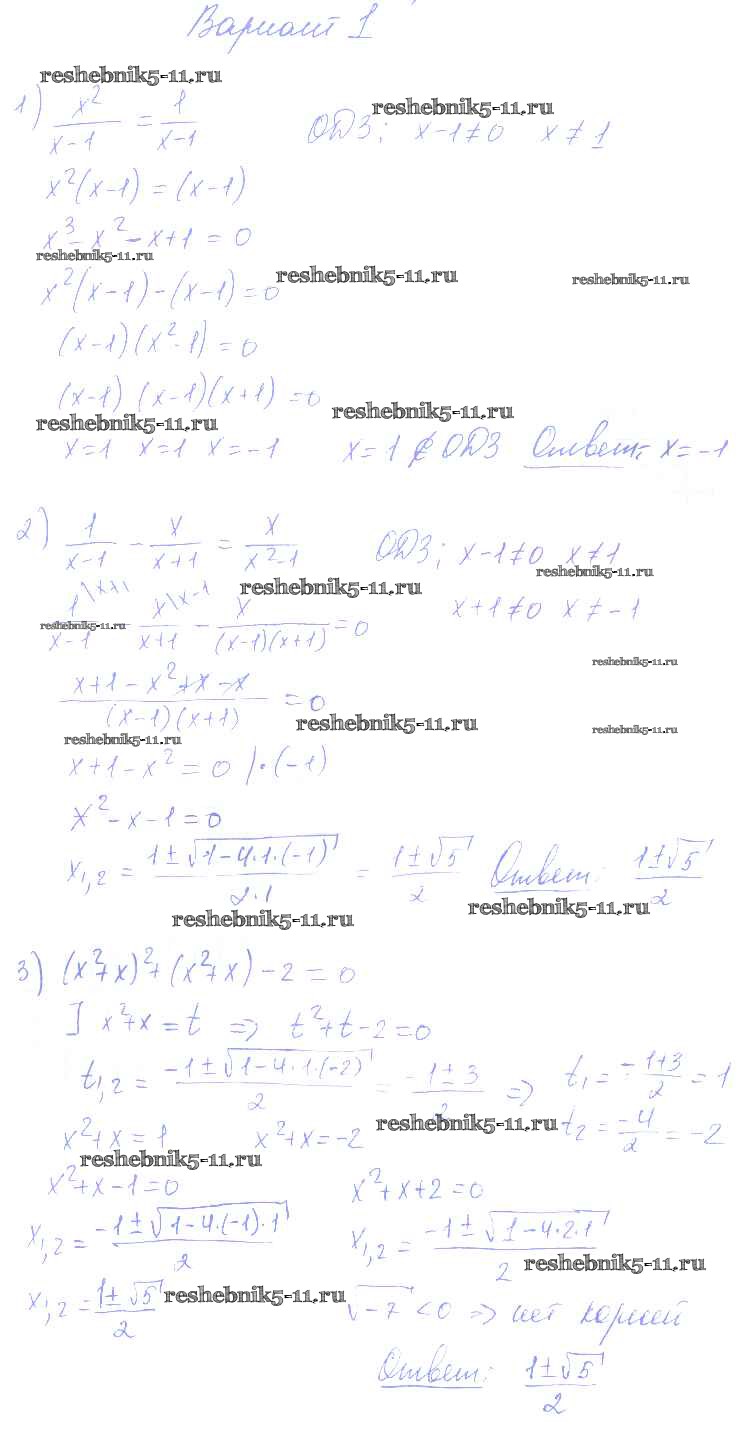 Вариант 1
reshebnik5-11.ru
1) x²/(x-1) = 1/(x-1) ОДЗ; x-1≠0 x≠1
reshebnik5-11.ru
x²(x-1) = (x-1)
x³-x²-x+1=0
reshebnik5-11.ru
x²(x-1)-(x-1)=0
reshebnik5-11.ru
reshebnik5-11.ru
(x-1)(x²-1)=0
(x-1)(x-1)(x+1)=0
reshebnik5-11.ru
reshebnik5-11.ru
x=1 x=1 x=-1 x=1 ∉ ОДЗ Ответ: x=-1
2) 1/(x-1) - x/(x+1) = x/(x²-1) ОДЗ; x-1≠0 x≠1
reshebnik5-11.ru
reshebnik5-11.ru
1\x+1/(x-1) - x\x-1/(x+1) - x/((x-1)(x+1)) =0 x+1≠0 x≠-1
reshebnik5-11.ru
reshebnik5-11.ru
(x+1-x²+x-x)/((x-1)(x+1)) =0
reshebnik5-11.ru
reshebnik5-11.ru
reshebnik5-11.ru
x+1-x²=0 |·(-1)
x²-x-1=0
x1,2 = (1±√(1-4·1·(-1)))/(2·1) = (1±√5)/2 Ответ: (1±√5)/2
reshebnik5-11.ru
reshebnik5-11.ru
3) (x²+x)²+(x²+x)-2=0
] x²+x=t => t²+t-2=0
t1,2 = (-1±√(1-4·1·(-2)))/2 = (-1±3)/2 => t1= (-1+3)/2 =1
x²+x=1 x²+x=-2 reshebnik5-11.ru t2= -4/2 =-2
reshebnik5-11.ru
x²+x-1=0 x²+x+2=0
x1,2 = (-1±√(1-4·(-1)·1))/2 x1,2 = (-1±√(1-4·2·1))/2
reshebnik5-11.ru
x1,2 = (1±√5)/2 reshebnik5-11.ru √-7 <0 => нет корней
Ответ: (1±√5)/2